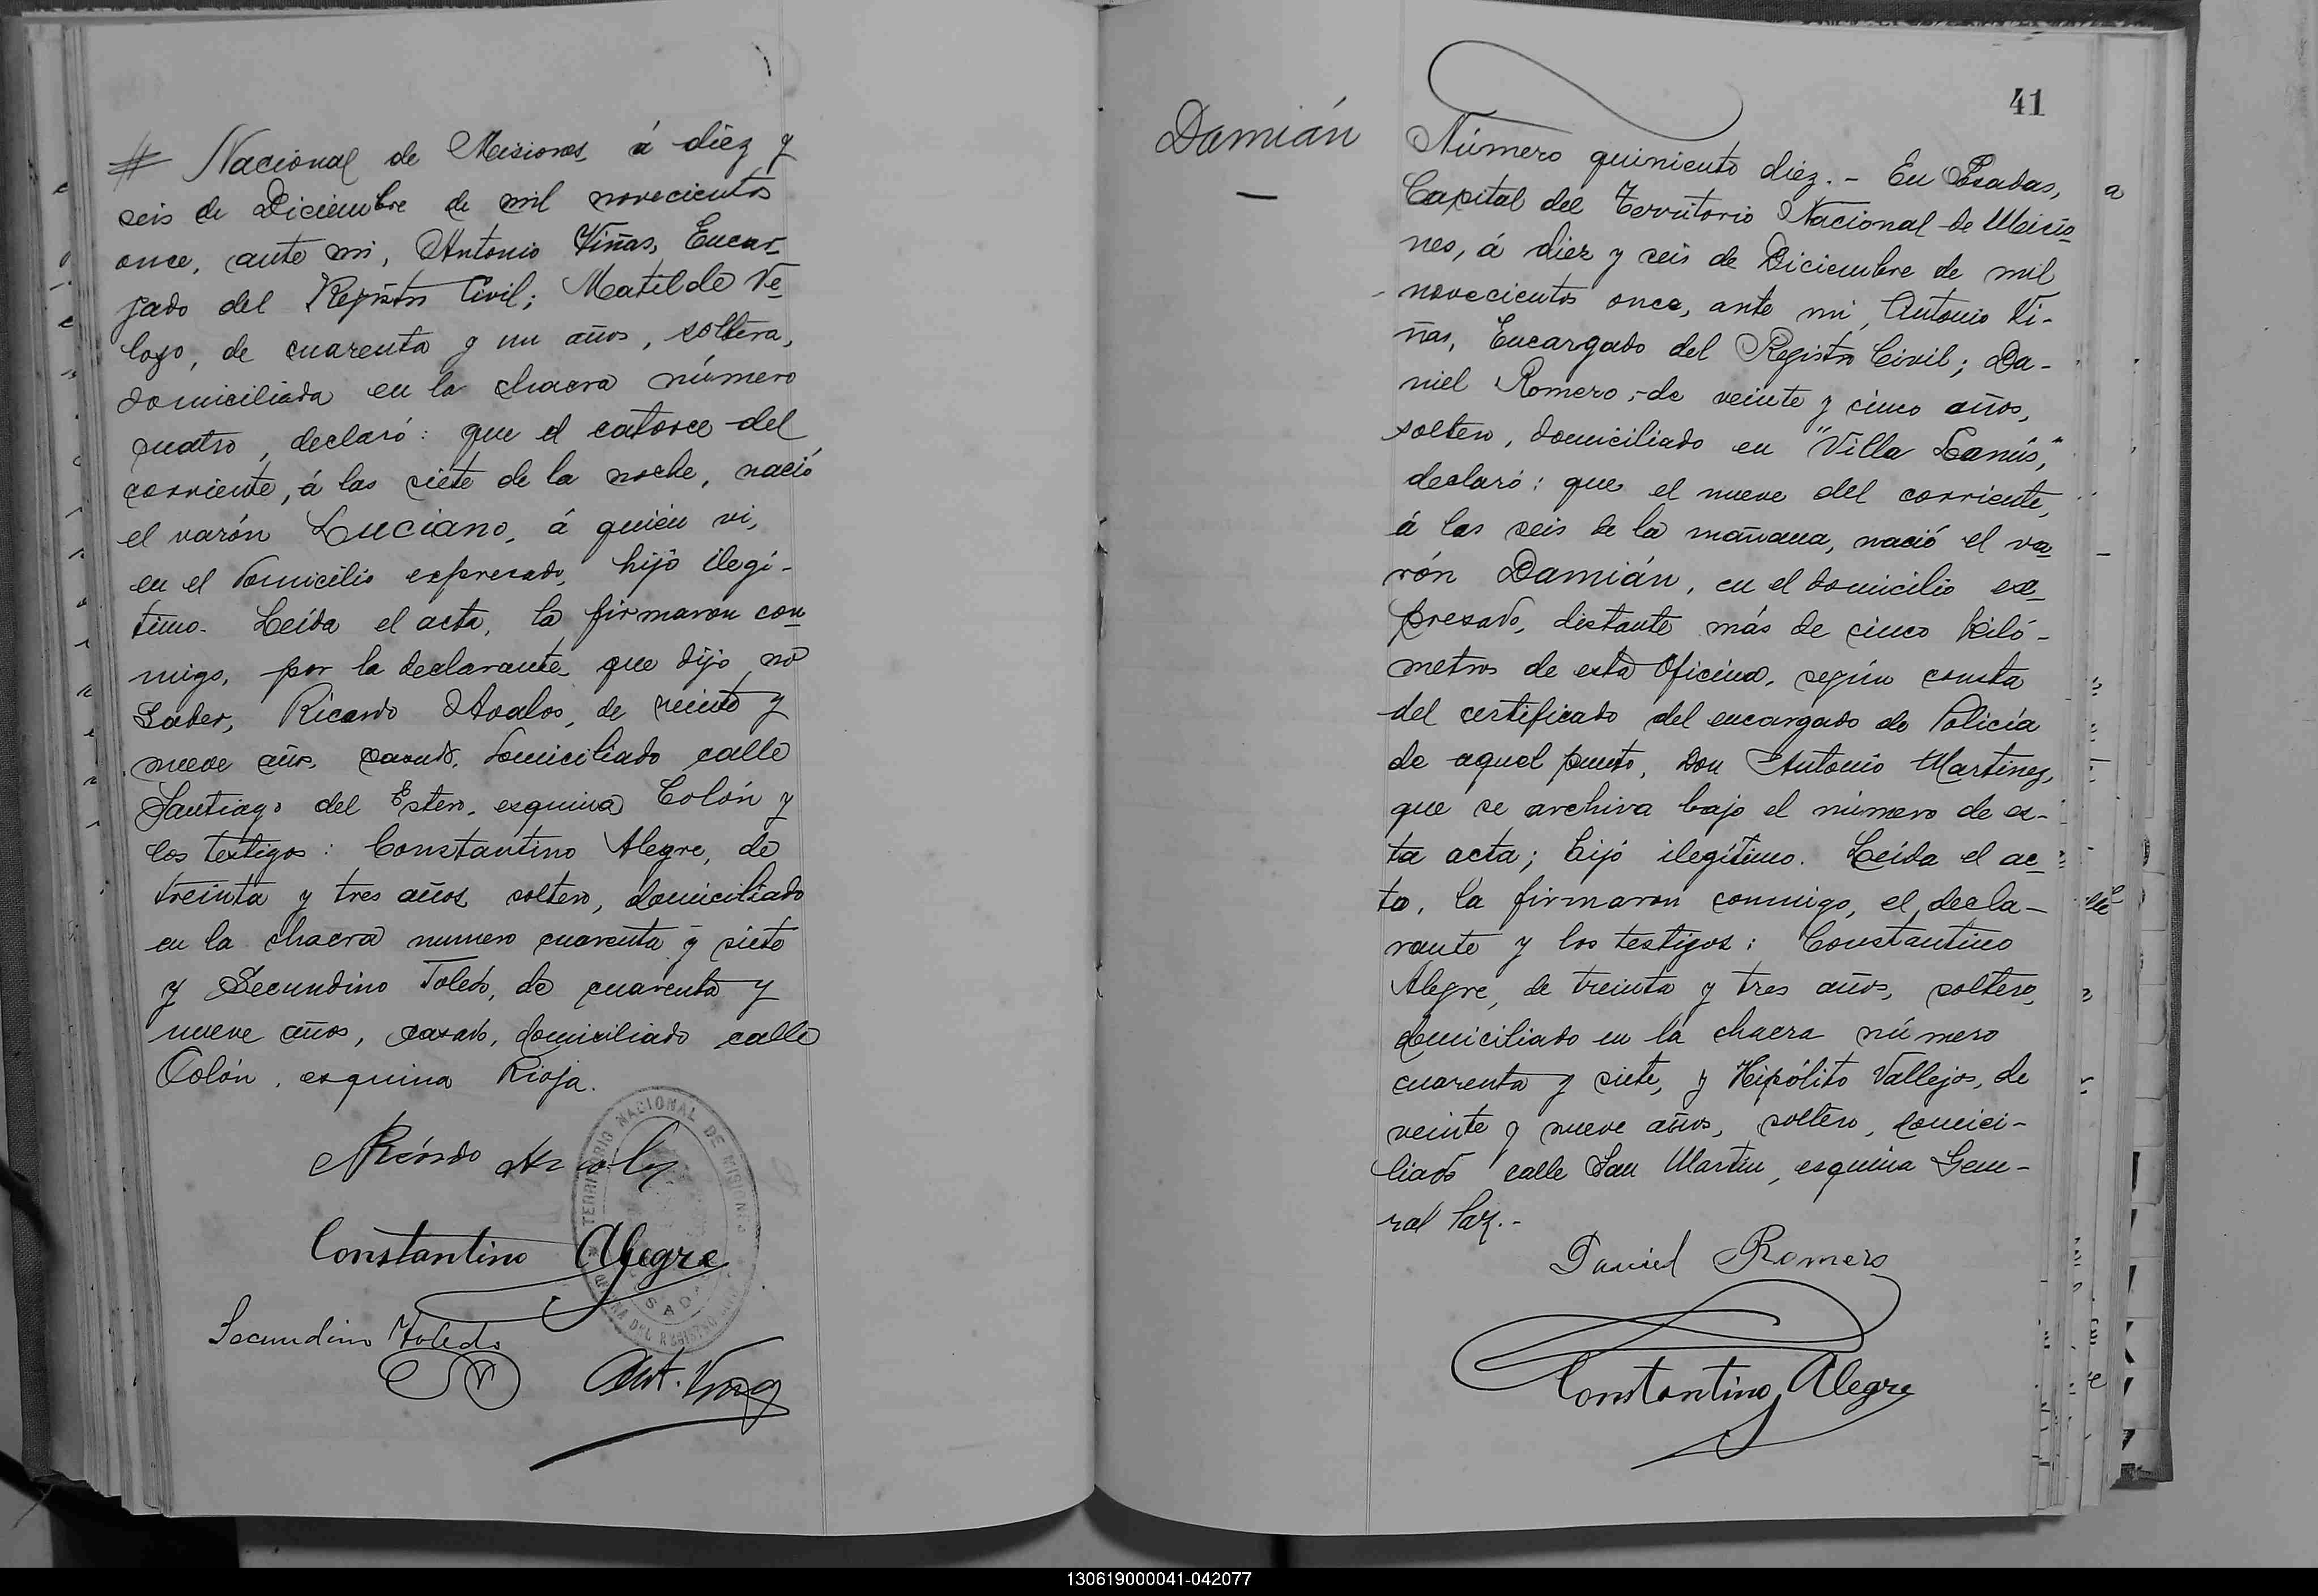 # Nacional de Misiones, á diez y
seis de Diciembre de mil novecientos
once, ante mi, Antonio Viñas, Encar-
gado del Registro Civil; Matilde Ve-
lozo, de cuarenta y un años, soltera,
domiciliada en la chacra número
cuatro, declaró: que el catorce del
corriente, á las siete de la noche, nació
el varón Luciano, á quién vi,
en el domicilio expresado, hijo ilegí-
timo. Leída el acta, la firmaron con-
migo, por la declarante que dijo no
saber, Ricardo Avalos, de veinte y
nueve años, casado, domiciliado calle
Santiago del Estero, esquina Colón y
los testigos: Constantino Alegre, de
treinta y tres años, soltero, domiciliado
en la chacra numero cuarenta y siete
y Secundino Toledo, de cuarenta y
nueve años, casado, domiciliado calle
Colón, esquina Rioja.
TERRITORIO NACIONAL DE MISIONES
OFICINA DEL REGISTRO
Constantino Alegre
Secundino Toledo
Ant. Viñas
41
Damián
Número quiniento diez.- En Posadas,
Capital del Territorio Nacional de Misio-
nes, á diez y seis de Diciembre de mil
novecientos once, ante mi, Antonio Vi-
ñas, Encargado del Registro Civil; Da-
niel Romero, de veinte y cinco años,
soltero, domiciliado en "Villa Lanús,"
declaró: que el nueve del corriente,
á las seis de la mañana, nació el va-
rón Damián, en el domicilio ex-
presado, distante más de cinco kiló-
metros de esta Oficina, según consta
del certificado del encargado de Policía
de aquel punto, Don Antonio Martinez,
que se archiva bajo el número de es-
ta acta; hijo ilegítimo. Leída el ac-
ta, la firmaron conmigo, el decla-
rante y los testigos: Constantino
Alegre, de treinta y tres años, soltero,
domiciliado en la chacra número
cuarenta y siete, y Hipólito Vallejos, de
veinte y nueve años, soltero, domici-
liado calle San Martin, esquina Gene-
ral Paz.-
Daniel Romero
Constantino Alegre
130619000041-042077